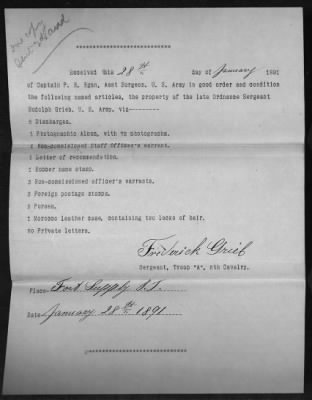 Received this 28th day of January 1891
of Captain P. R. Egan, Asst Surgeon, U. S. Army in good order and condition
the following named articles, the property of the late Ordnance Sergeant
Rudolph Grieb, U. S. Army, viz--------
Discharges.
1 Photographic Album, with photographs.
1 Non-commissioned Staff Officer's warrant.
1 Letter of recommendation.
1 Rubber name stamp.
3 Non-commissioned officer's warrants.
2 Foreign postage stamps.
2 Purses.
1 Morocco leather case, containing two locks of hair.
Private letters.
Frederick Grieb
Sergeant, Troop "A", 5th Cavalry.
Place- Fort Supply I.T.
Date- January 28th 1891.